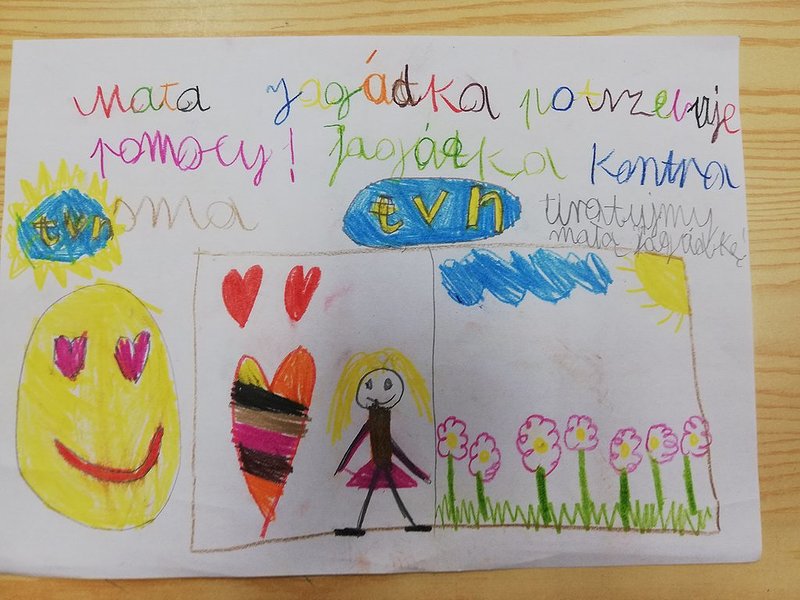 Mała jagódka potrzebuje
pomocy! Jagódka kontra
tvn sma tvn uratujmy
małą jagódkę!